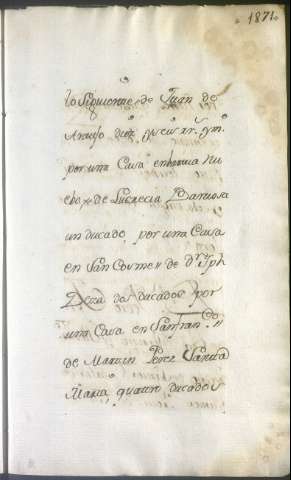 1871
lo Siguiente de Juan de
Araujo diez y seis rr.s y m.o
por una Casa en
ebo, de Lucrecia Barrosa
un ducado, por una Casa
en San Cosme de d.n Jph
Deza dos ducados por
una Casa en San fran.co
de Martin Perez Santa
Maria, quattro ducados